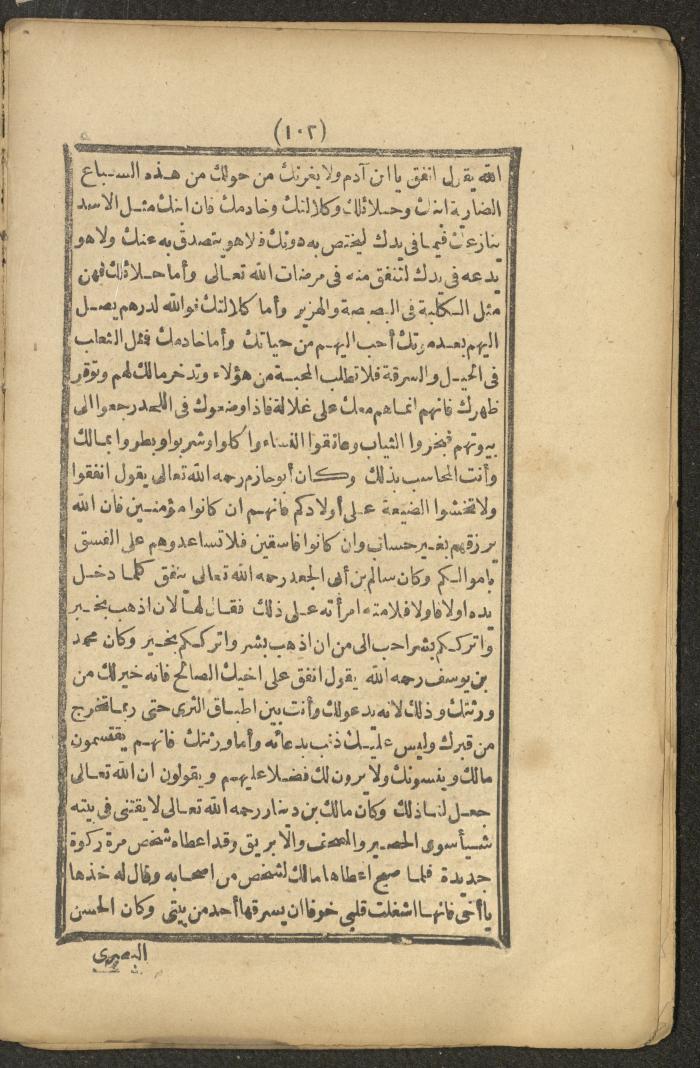 (١٠٢)
الله يقول انفق يا ابن آدم ولا يغرنك من حولك من هذه السباع
الضارية ابنك وحلائلك وكلالتك وخادمك فان ابنك مثل الاسد
ينازعك فيما فى يدك ليختص به دونك فلا هو يتصدق به عنك ولا هو
يدعه فى يدك لتنفق منه فى مرضات الله تعالى وأما حلائلك فهن
مثل الكلبة فى البصبصة والهزير وأما كلالتك فوالله لدرهم يصل
اليهم بعد موتك أحب اليهم من حياتك وأما خادمك فمثل الثعلب
فى الحيل والسرقة فلا تطلب المحبة من هؤلاء وتدخر مالك لهم وتوقر
ظهرك فانهم انما هم معك على غلالة فاذا وضعوك فى اللحد رجعوا الى
بيوتهم فبخروا الثياب وعانقوا النساء وأكلوا وشربوا وبطروا بمالك
وأنت المحاسب بذلك وكان أبو حازم رحمه الله تعالى يقول انفقوا
ولا تخشوا الضيعة على أولادكم فانهم ان كانوا مؤمنين فان الله
يرزقهم بغير حساب وان كانوا فاسقين فلا تساعدوهم على الفسق
باموالكم وكان سالم بن أبى الجعد رحمه الله تعالى ينفق كلما دخل
يده اولا فاولا فلامته امرأته على ذلك فقال لها لان اذهب بخير
واترككم بشر احب الى من ان اذهب بشر واترككم بخير وكان محمد
بن يوسف رحمه الله يقول انفق على اخيك الصالح فانه خير لك من
ورثتك وذلك لانه يدعو لك وأنت بين اطباق الثرى حتى ربما تخرج
من قبرك وليس عليك ذنب بدعائه وأما ورثتك فانهم يقتسمون
مالك وينسونك ولا يرون لك فضلا عليهم ويقولون ان الله تعالى
جعل لنا ذلك وكان مالك بن دينار رحمه الله تعالى لا يقتنى فى بيته
شيأ سوى الحصير والمصحف والابريق وقد اعطاه شخص مرة ركوة
جديدة فلما صبح اعطاها مالك لشخص من اصحابه وقال له خذها
يا أخى فانها اشغلت قلبى خوفا ان يسرقها أحد من بيتى وكان الحسن
البصرى